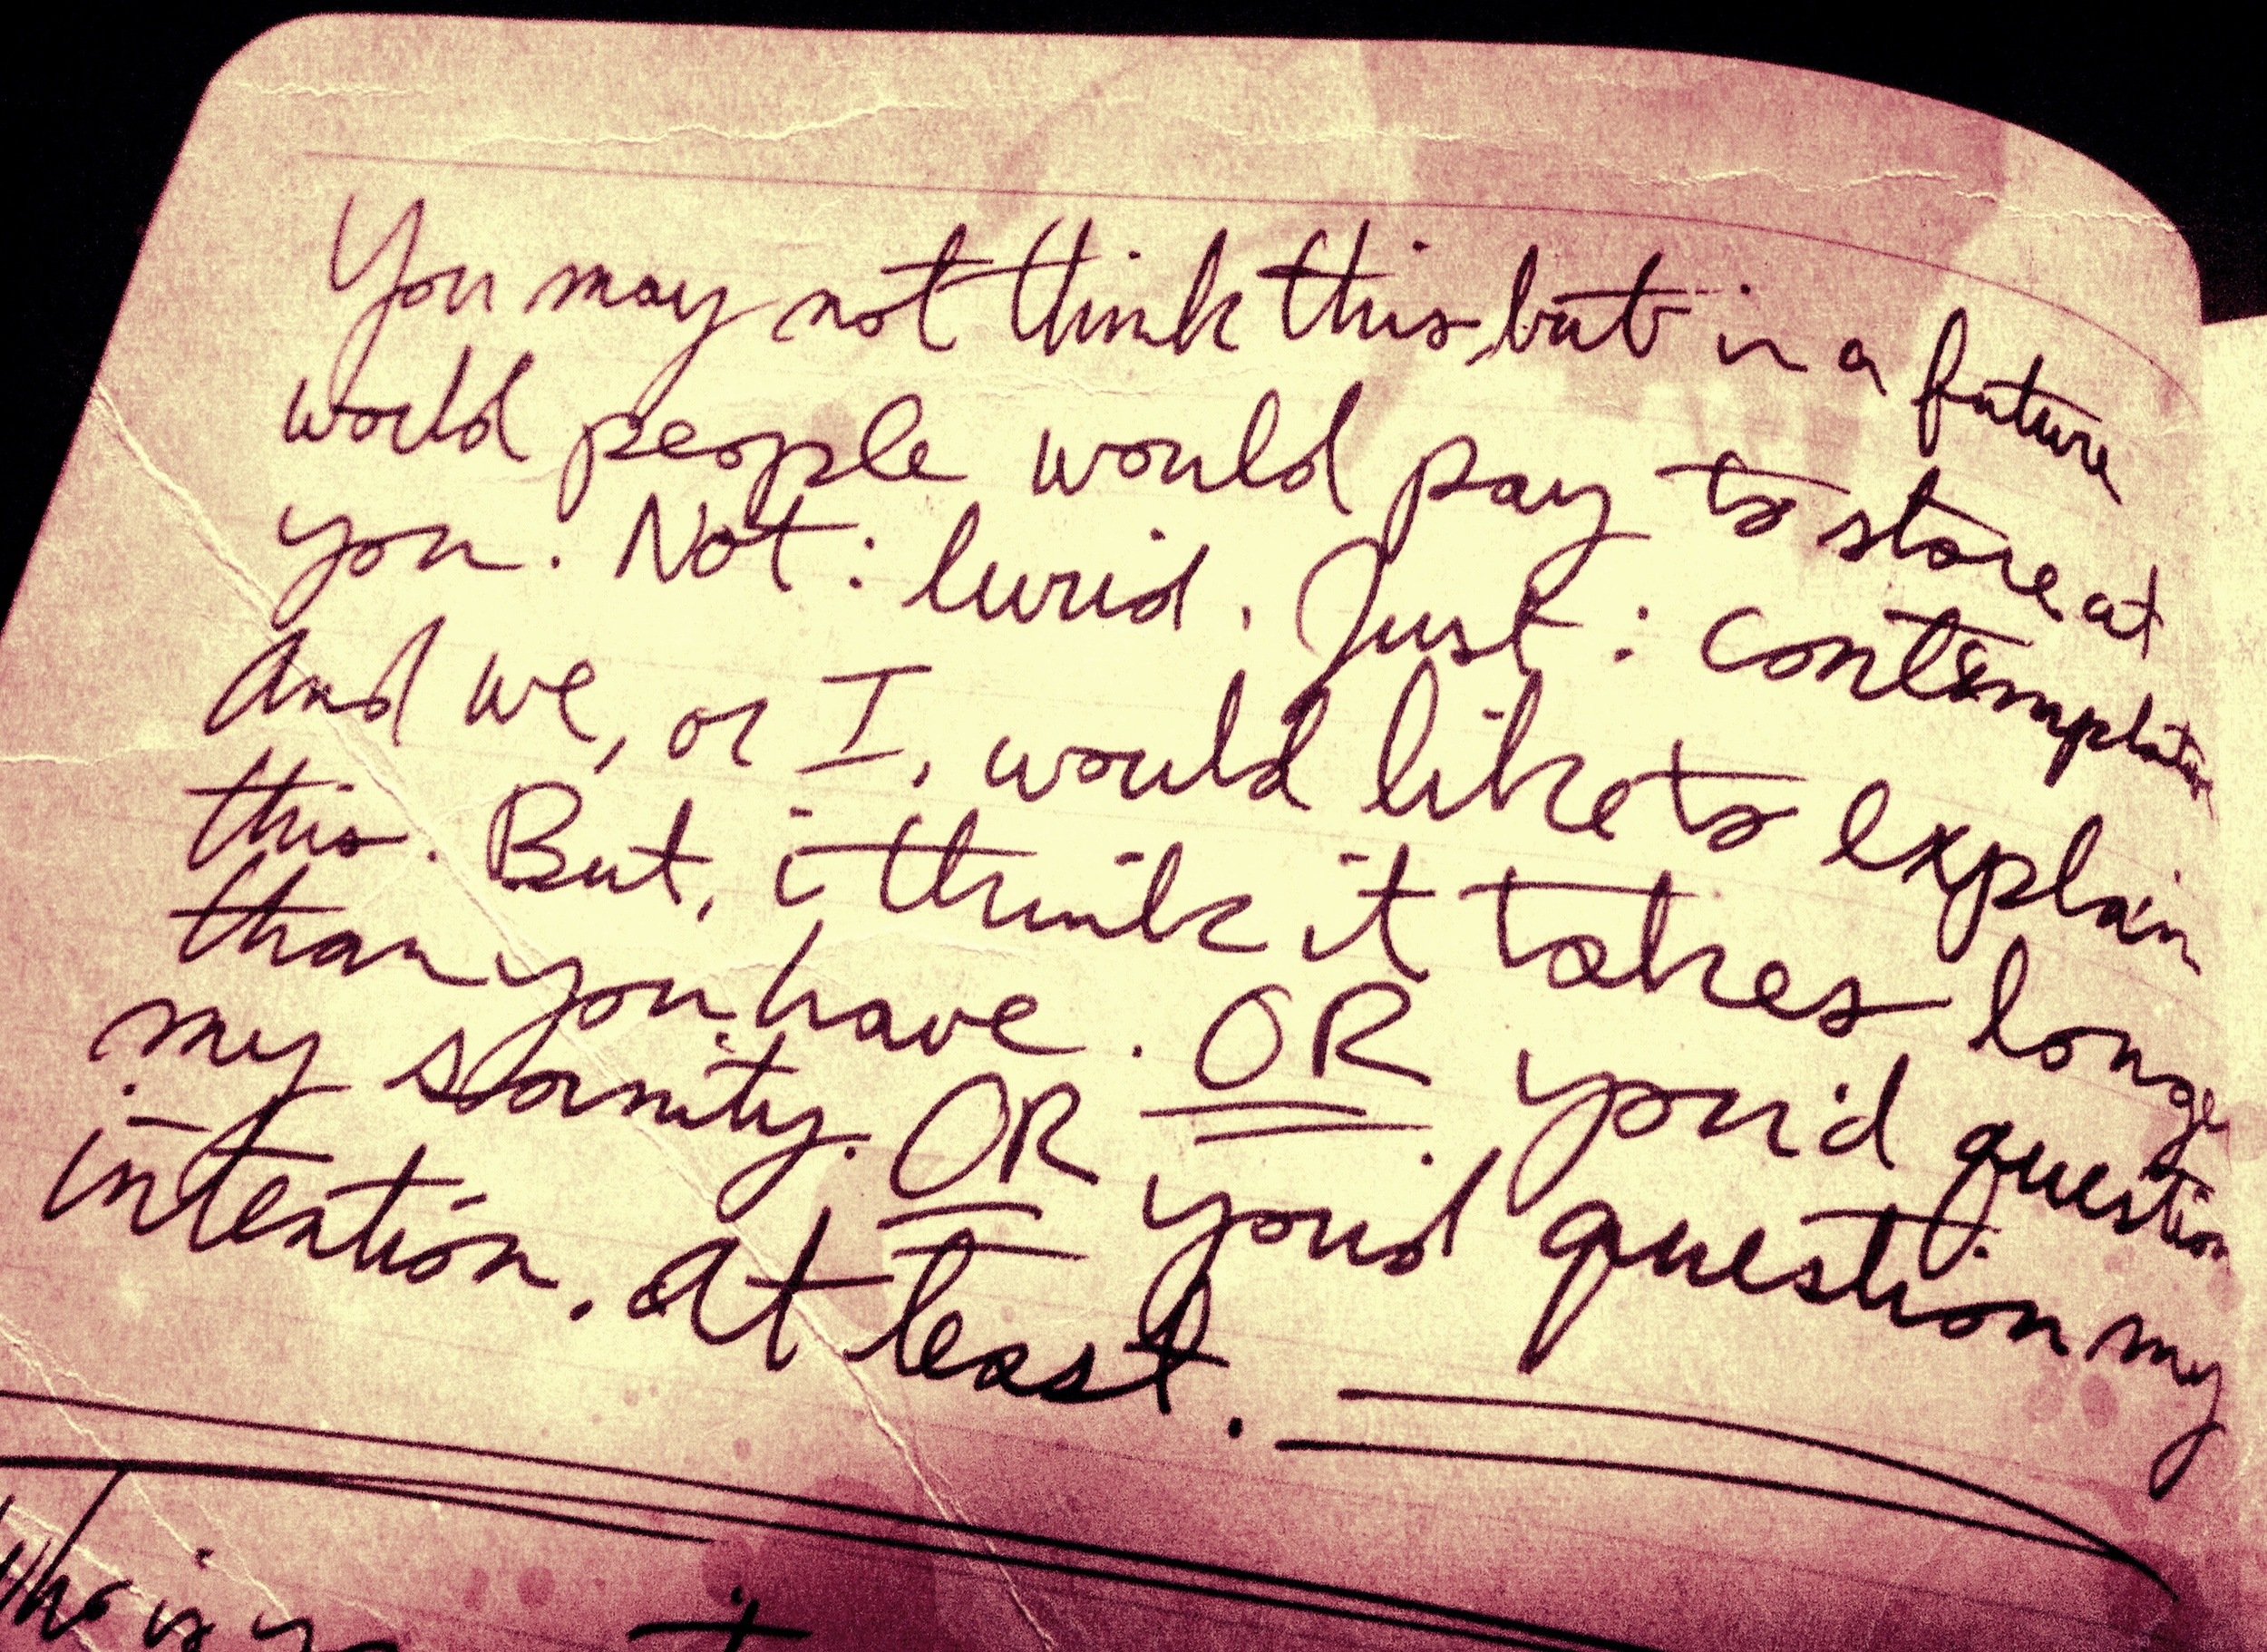 You may not think this, but in a future
world people would pay to stare at
you. Not: lurid. Just: contemplation
And we, or I, would like to explain
this. But, i think it takes longer
than you have. OR you'd question
my sanity. OR you'd question my
intention. At least.